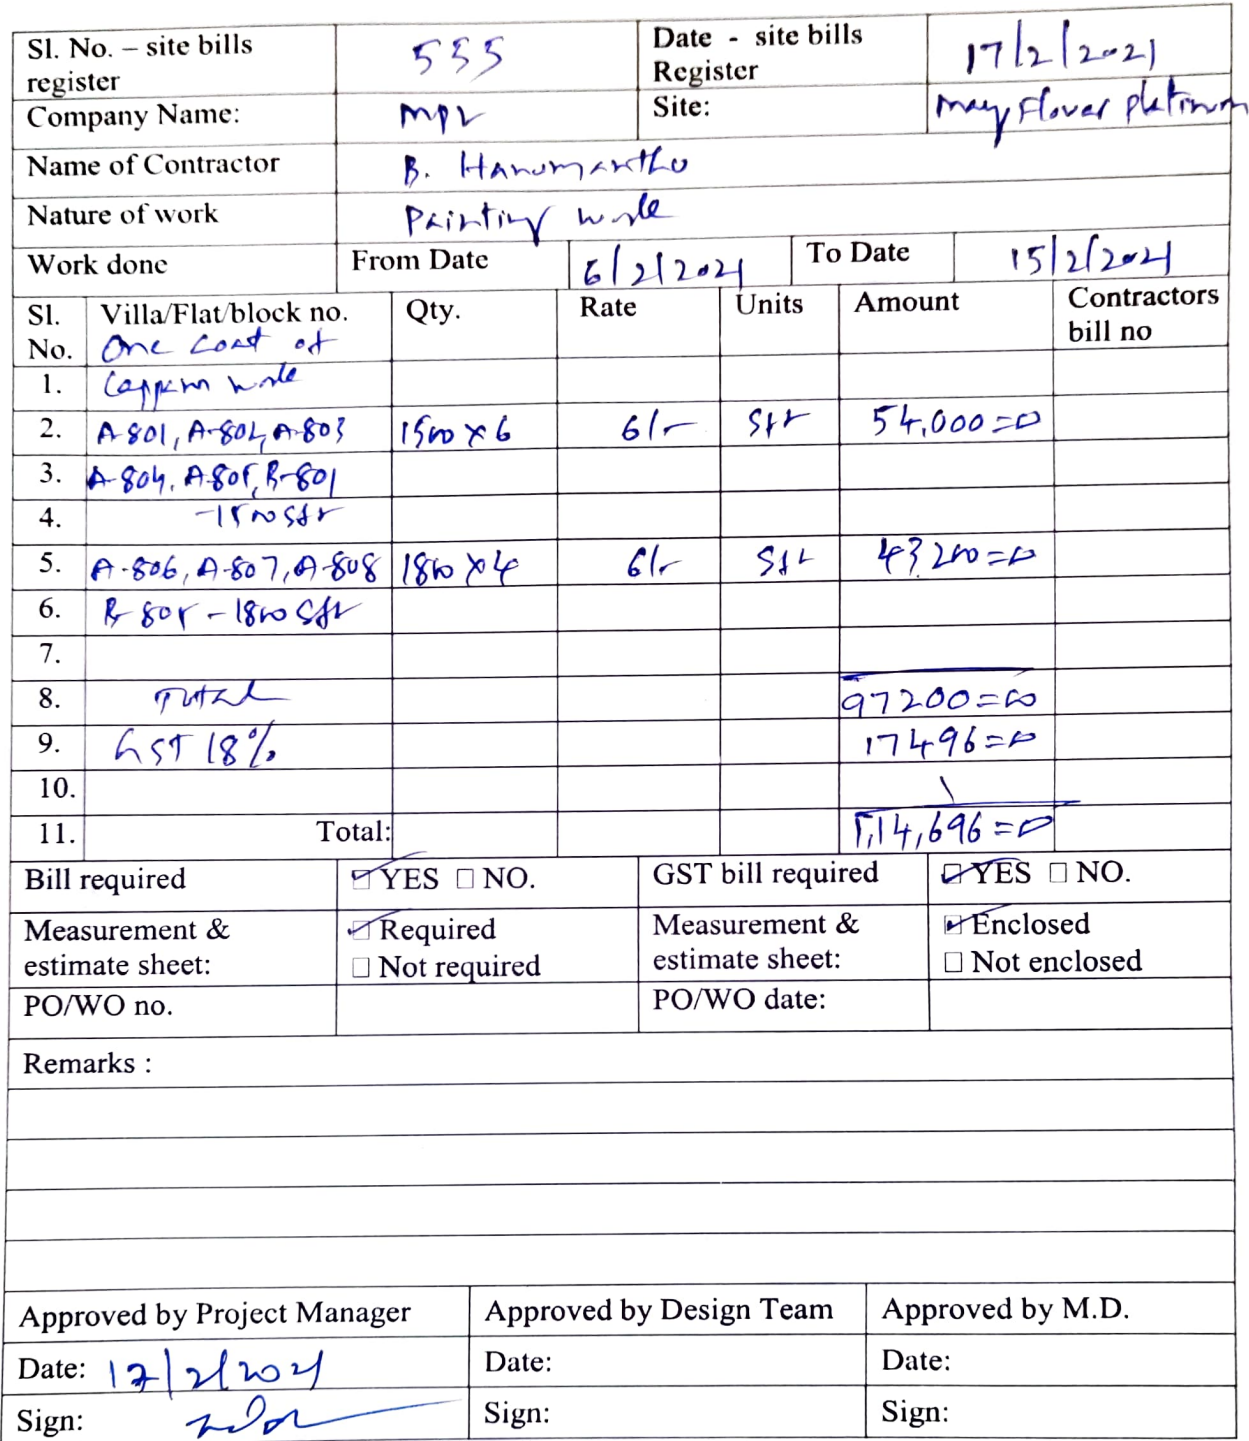 Sl. No. – site bills register 555 Date - site bills Register 17/2/2021
Company Name: MPL Site: May Flower Platinum
Name of Contractor B. Hanumanthu
Nature of work Painting work
Work done From Date 6/2/2021 To Date 15/2/2021
Sl. No. Villa/Flat/block no. Qty. Rate Units Amount Contractors bill no
One Coat of
1. Lappam work
2. A-801, A-802, A-803 1500 x 6 6/- Sft 54,000=00
3. A-804, A-805, B-801
4. -1500 Sft
5. A-806, A-807, A-808 1800 x 4 6/- Sft 43200=00
6. B-805 - 1800 Sft
7.
8. Total 97200=00
9. GST 18% 17496=00
10.
11. Total: 1,14,696=00
Bill required YES NO. GST bill required YES NO.
Measurement & estimate sheet: Required Not required Measurement & estimate sheet: Enclosed Not enclosed
PO/WO no. PO/WO date:
Remarks :
Approved by Project Manager Approved by Design Team Approved by M.D.
Date: 17/2/2021 Date: Date:
Sign: Sign: Sign: